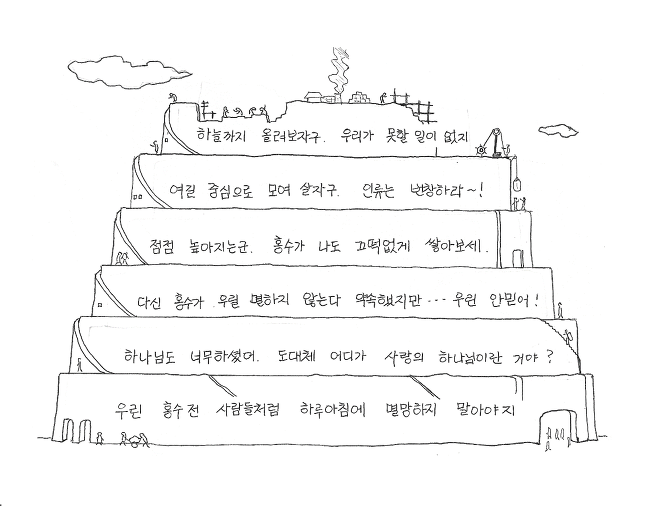 하늘까지 올려보자구. 우리가 못할 일이 없지
여길 중심으로 모여 살자구. 인류는 번창하라~!
점점 높아지는군. 홍수가 나도 끄떡없게 쌓아보세.
다신 홍수가 우릴 멸하지 않는다 약속했지만··· 우린 안믿어!
하나님도 너무하셨어. 도대체 어디가 사랑의 하나님이란 거야?
우린 홍수 전 사람들처럼 하루아침에 멸망하지 말아야지